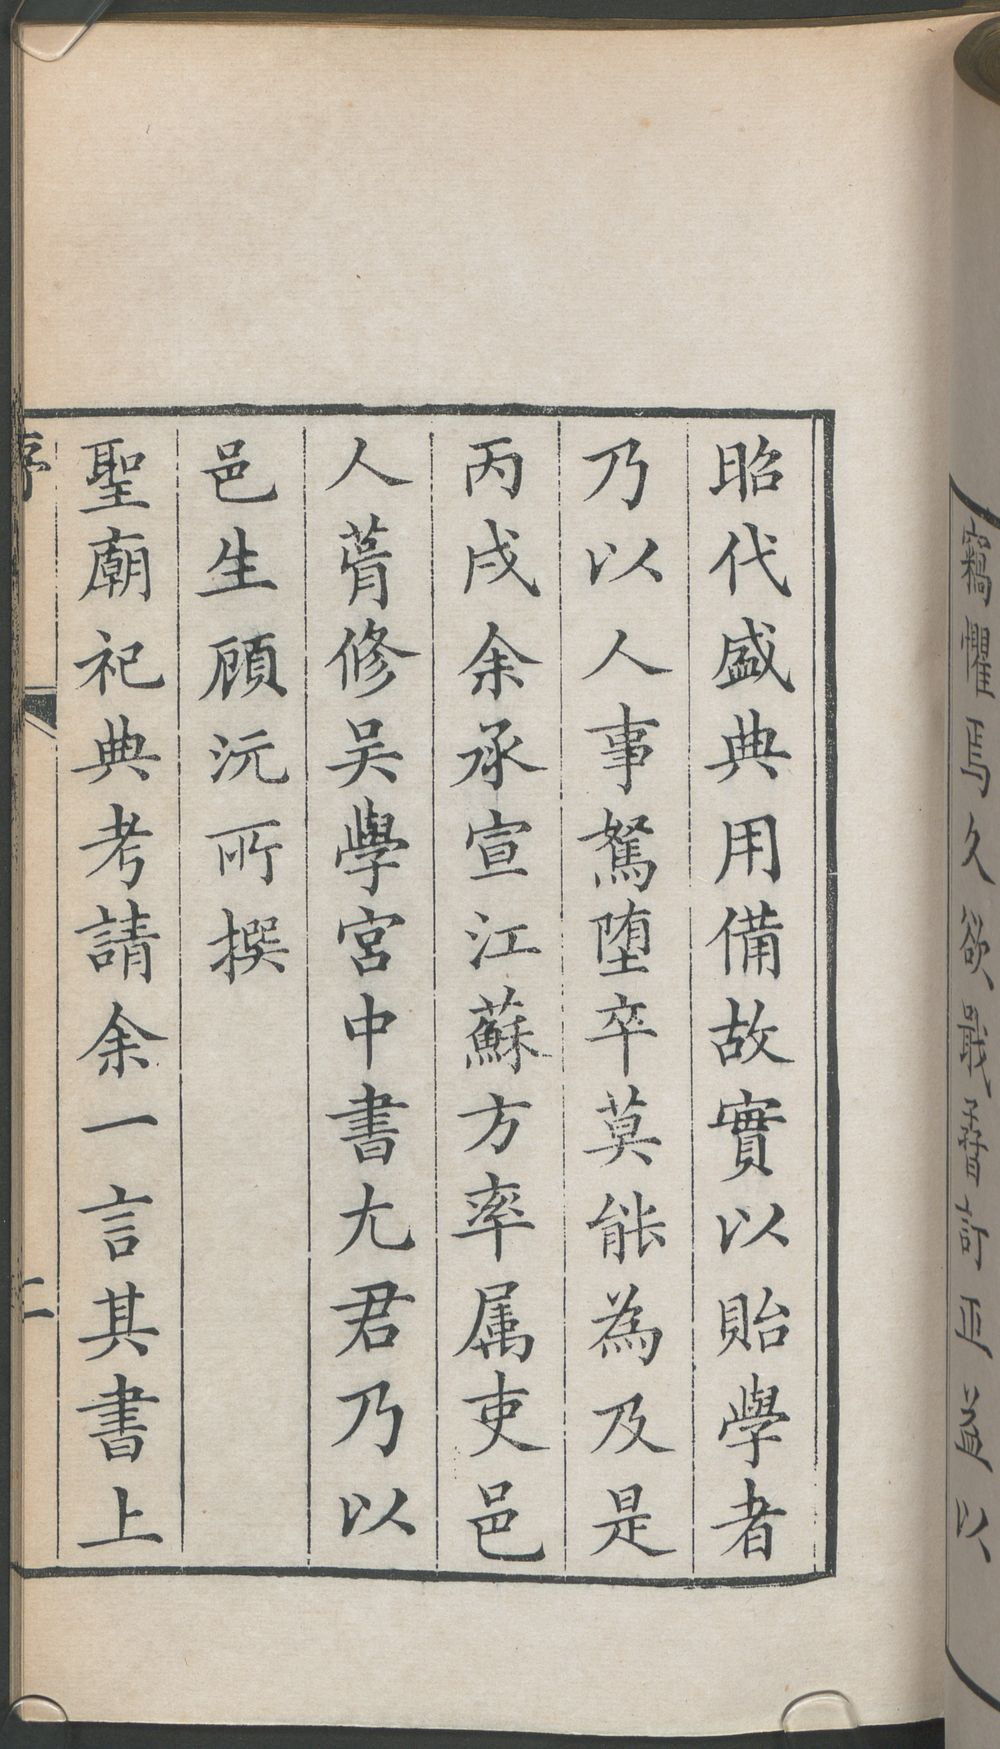 竊懼焉久欲戢䜓訂正益以
昭代盛典用備故實以貽學者
乃以人事駑堕卒莫能為及是
丙戌余承宣江蘇方率属吏邑
人葺修吴學宮中書尤君乃以
邑生顧沅所撰
聖廟祀典考請余一言其書上
序
二